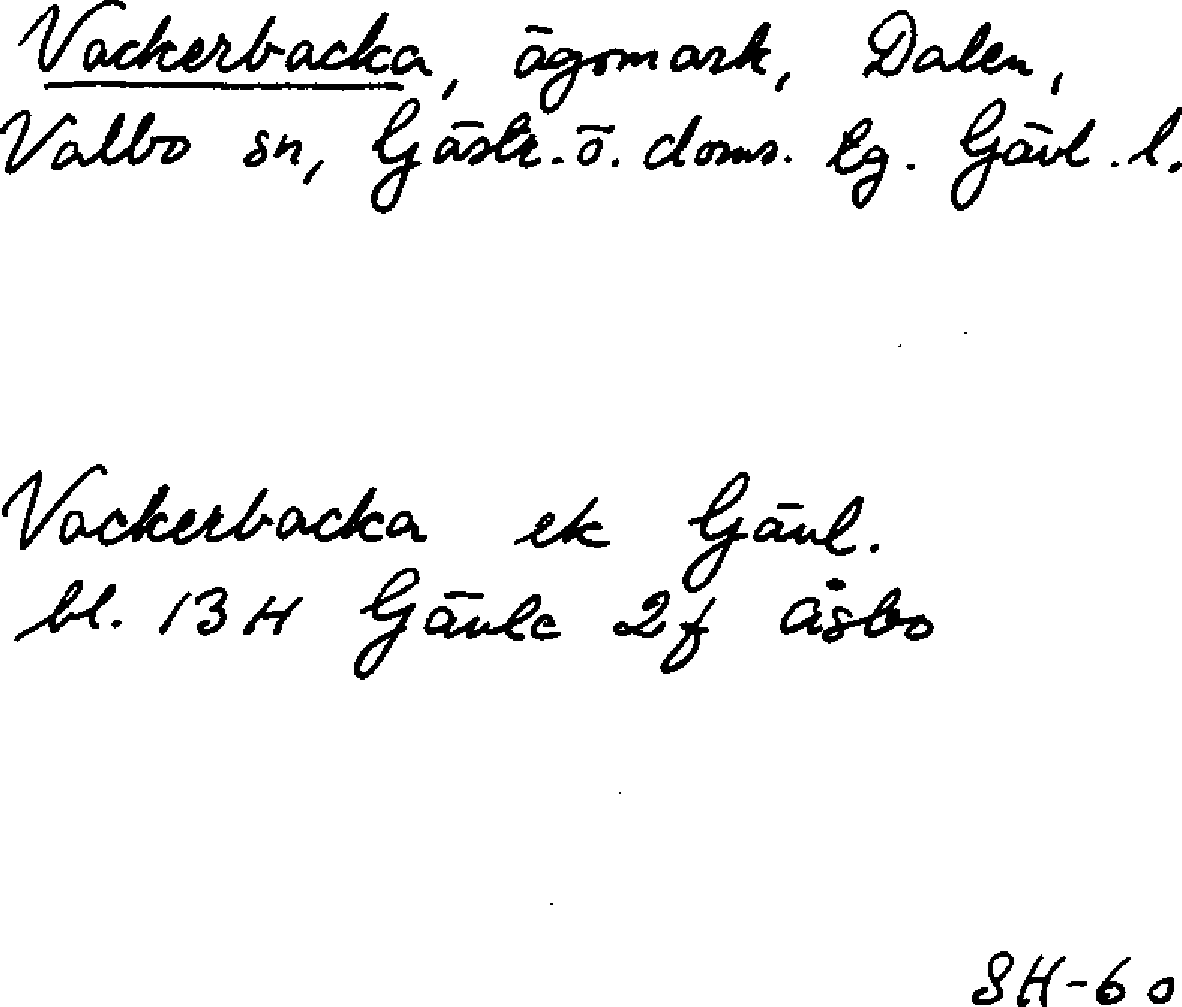 Vackerbacka, ägomark, Dalen,
Valbo sn, Gästr. ö. doms. tg. Gävl. l.
Vackerbacka ek Gävl.
bl. 13H Gävle 2f Åsbo
SH-60